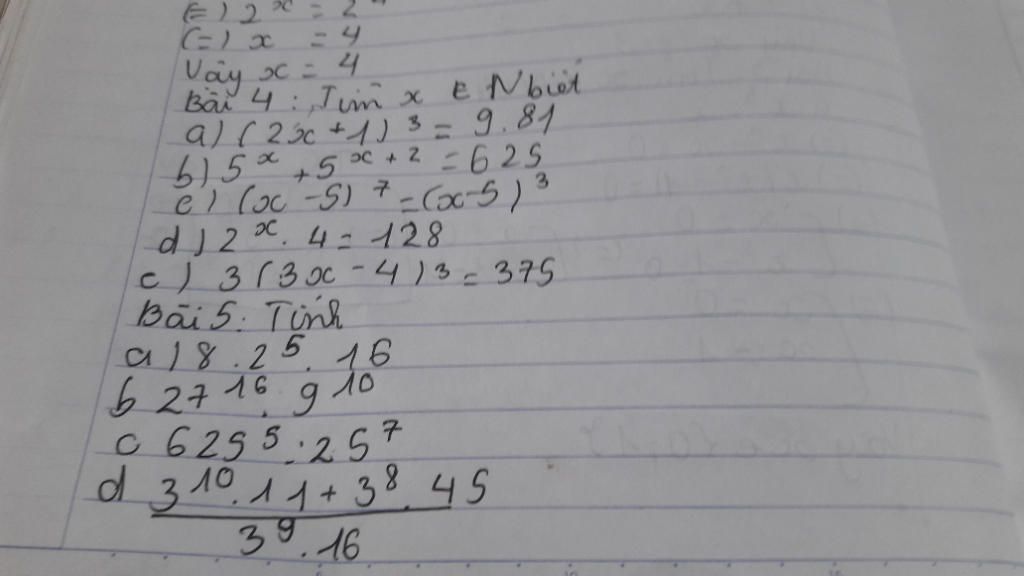 (=) 2^x = 2^4
(=) x = 4
Vây x = 4
Bài 4 : Tìm x ∈ N biết
a) (2x+1)^3 = 9.81
b) 5^x + 5^x+2 = 625
c) (x-5)^7 = (x-5)^3
d) 2^x. 4 = 128
c) 3(3x-4)^3 = 375
Bài 5: Tính
a) 8.2^5.16
b 27^16. 9^10
c 625^5:25^7
d 3^10.11+3^8.45
3^9.16